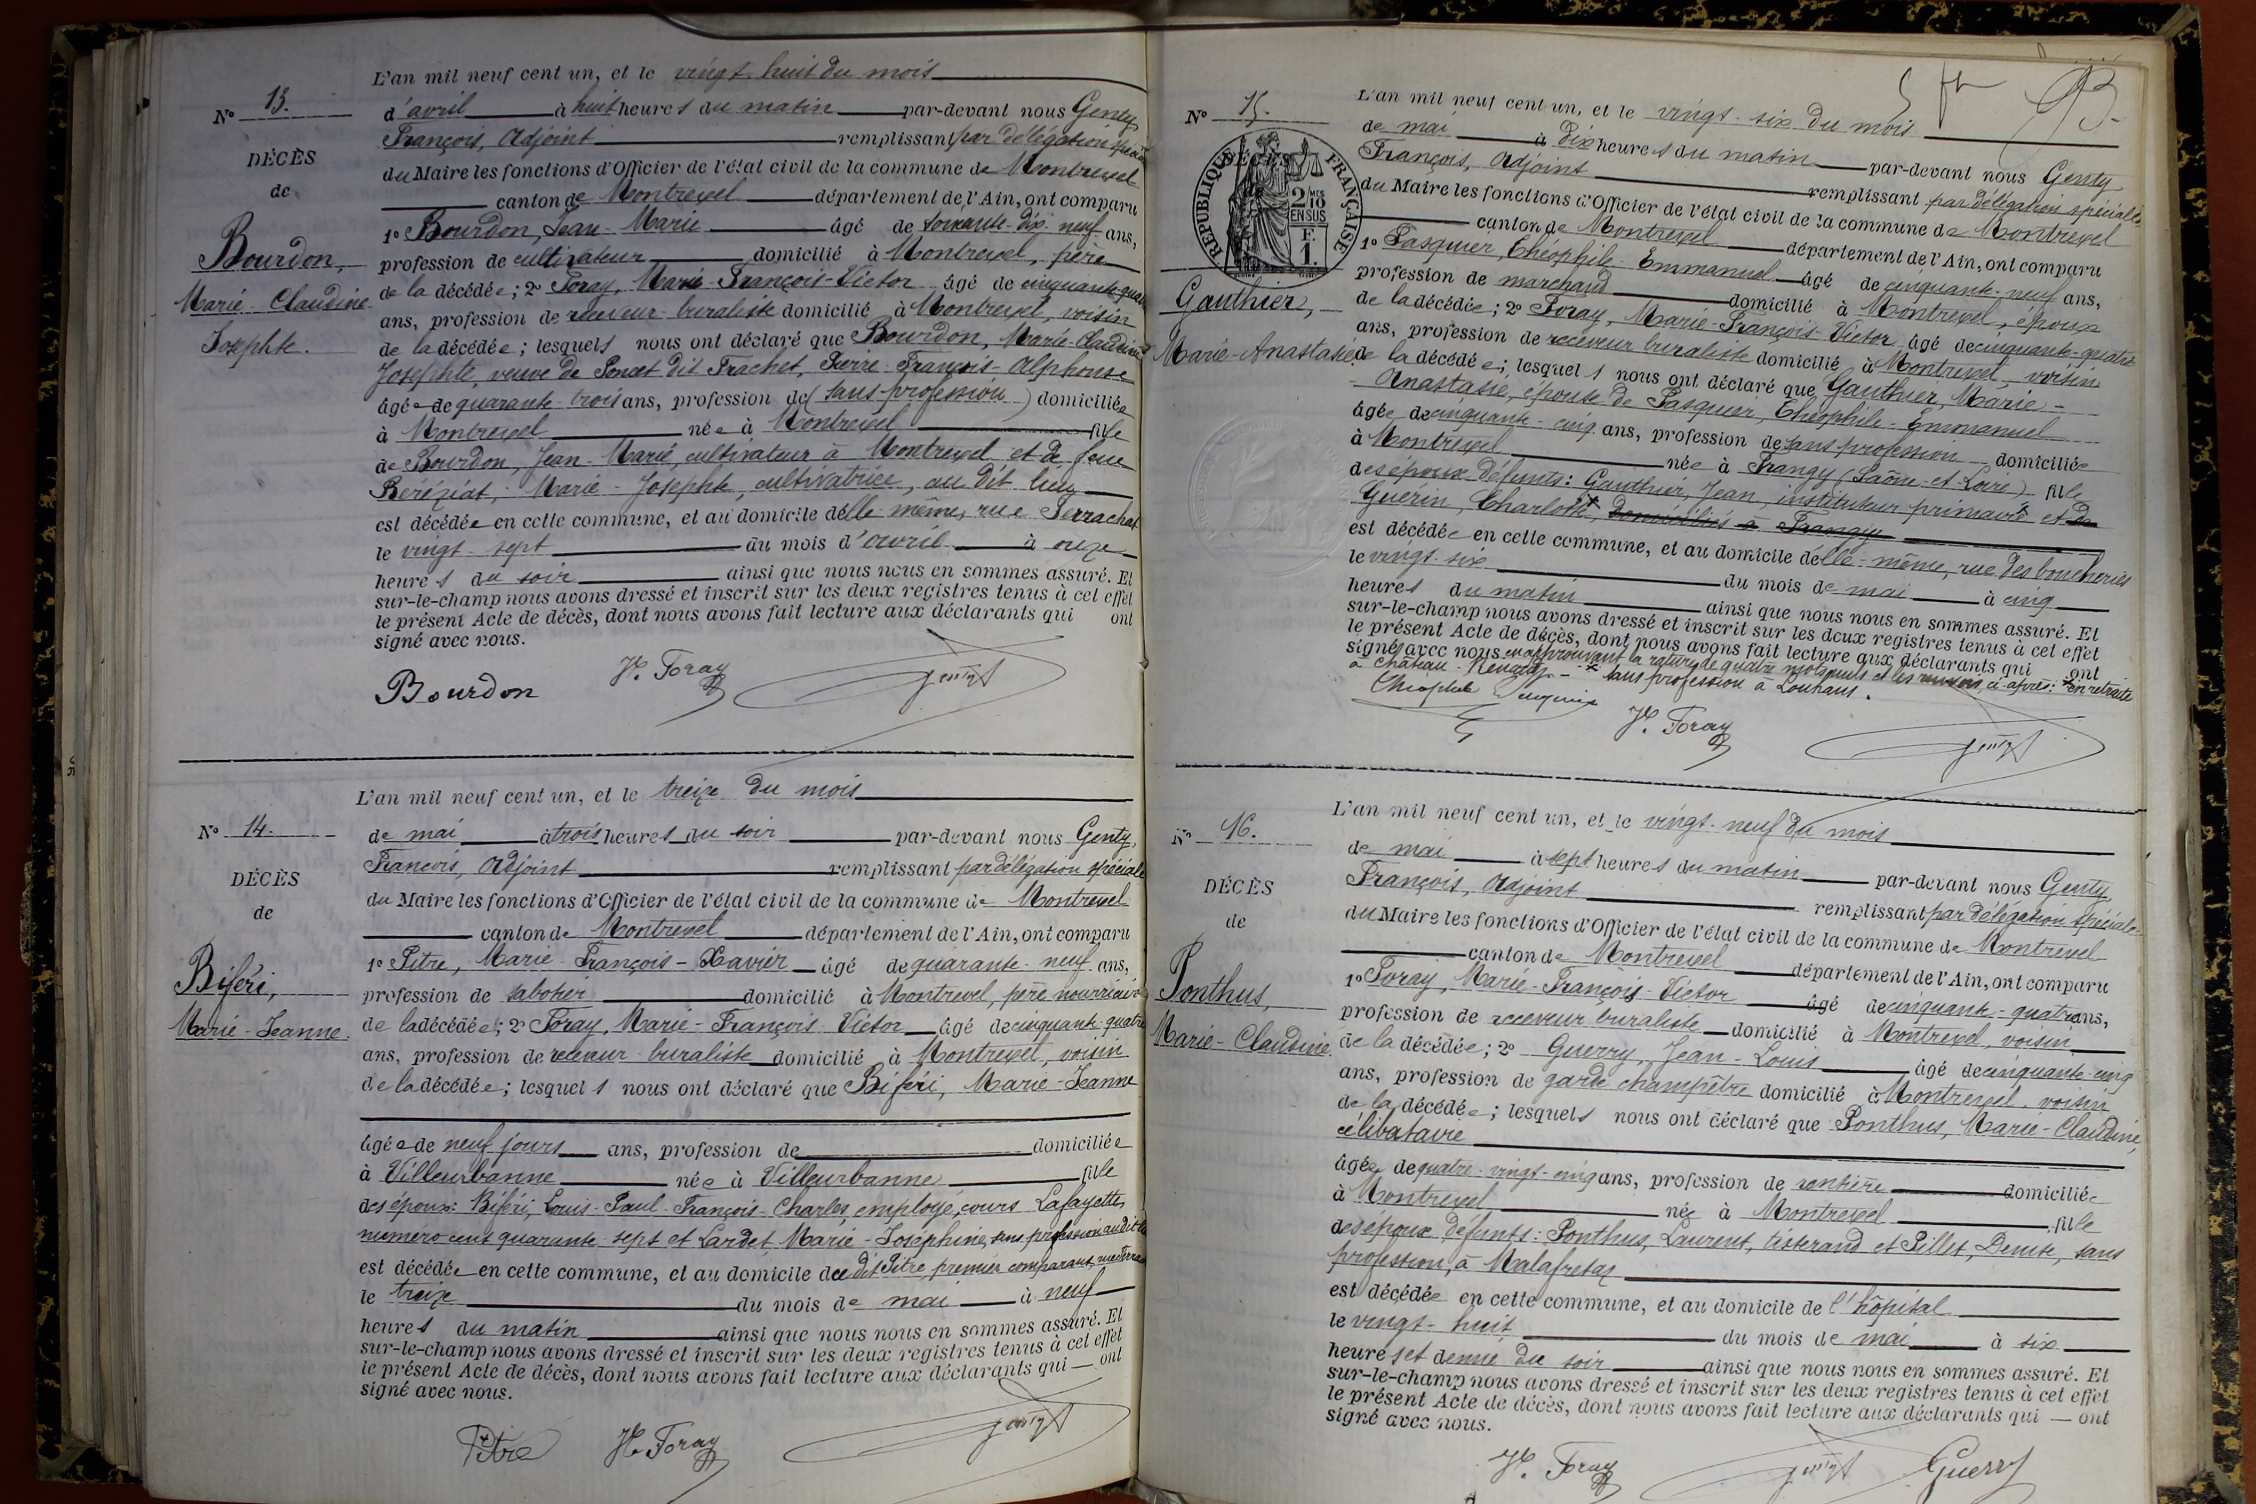 Nº 13.
DÉCÈS
de
Bourdon,
Marie-Claudine
Josephte.
L'an mil neuf cent un, et le vingt-huit du mois
d'avril à huit heures du matin par-devant nous Genty,
François, Adjoint remplissant par délégation spéciale
du Maire les fonctions d'Officier de l'état civil de la commune de Montrevel
canton de Montrevel département de l'Ain, ont comparu
1º Bourdon, Jean-Marie âgé de soixante-dix-neuf ans,
profession de cultivateur domicilié à Montrevel, père
de la décédée; 2º Foray, Marie-François-Victor âgé de cinquante-quatre
ans, profession de receveur-buraliste domicilié à Montrevel, voisin
de la décédée; lesquels nous ont déclaré que Bourdon, Marie-Claudine
Josephte, veuve de Poncet dit Trachet, Pierre-François-Alphonse
âgée de quarante-trois ans, profession de (sans-profession) domiciliée
à Montrevel née à Montrevel fille
de Bourdon, Jean-Marie, cultivateur à Montrevel et de feue
Béréziat, Marie-Josephte, cultivatrice, au dit lieu
est décédée en cette commune, et au domicile d'elle-même, rue Ferrachat
le vingt-sept du mois d'avril à onze
heures du soir ainsi que nous nous en sommes assuré. Et
sur-le-champ nous avons dressé et inscrit sur les deux registres tenus à cet effet
le présent Acte de décès, dont nous avons fait lecture aux déclarants qui ont
signé avec nous.
Bourdon V. Foray Genty
Nº 14.
DÉCÈS
de
Biféri,
Marie-Jeanne.
L'an mil neuf cent un, et le treize du mois
de mai à trois heures du soir par-devant nous Genty,
François, Adjoint remplissant par délégation spéciale
du Maire les fonctions d'Officier de l'état civil de la commune de Montrevel
canton de Montrevel département de l'Ain, ont comparu
1º Pitre, Marie-François-Xavier âgé de quarante-neuf ans,
profession de sabotier domicilié à Montrevel, père nourricier
de la décédée; 2º Foray, Marie-François-Victor âgé de cinquante-quatre
ans, profession de receveur-buraliste domicilié à Montrevel, voisin
de la décédée; lesquels nous ont déclaré que Biféri, Marie-Jeanne
âgée de neuf jours ans, profession de domiciliée
à Villeurbanne née à Villeurbanne fille
des époux: Biféri, Louis-Paul-François-Charles, employé, cours Lafayette,
numéro cent quarante-sept et Lardet Marie-Joséphine, sans profession au dit lieu
est décédée en cette commune, et au domicile du dit Pitre, premier comparant,
le treize du mois de mai à neuf
heures du matin ainsi que nous nous en sommes assuré. Et
sur-le-champ nous avons dressé et inscrit sur les deux registres tenus à cet effet
le présent Acte de décès, dont nous avons fait lecture aux déclarants qui ont
signé avec nous.
Pitre V. Foray Genty
93.
Nº 15.
DÉCÈS
de
RÉPUBLIQUE FRANÇAISE
2/10 EN SUS
F.
1.
Gauthier,
Marie-Anastasie.
L'an mil neuf cent un, et le vingt-six du mois
de mai à dix heures du matin par-devant nous Genty
François, Adjoint remplissant par délégation spéciale
du Maire les fonctions d'Officier de l'état civil de la commune de Montrevel
canton de Montrevel département de l'Ain, ont comparu
1º Pasquier, Théophile-Emmanuel âgé de cinquante-neuf ans,
profession de marchand domicilié à Montrevel, époux
de la décédée; 2º Foray, Marie-François-Victor âgé de cinquante-quatre
ans, profession de receveur buraliste domicilié à Montrevel, voisin
de la décédée; lesquels nous ont déclaré que Gauthier, Marie-
Anastasie, épouse de Pasquier, Théophile-Emmanuel
âgée de cinquante-cinq ans, profession de sans profession domiciliée
à Montrevel née à Frangy (Saône-et-Loire) fille
des époux défunts: Gauthier, Jean, instituteur primaire et de
Guerin, Charlotte, domiciliés à Frangy
est décédée en cette commune, et au domicile d'elle-même, rue des boucheries
le vingt-six du mois de mai à cinq
heures du matin ainsi que nous nous en sommes assuré. Et
sur-le-champ nous avons dressé et inscrit sur les deux registres tenus à cet effet
le présent Acte de décès, dont nous avons fait lecture aux déclarants qui ont
signé avec nous en approuvant la rature de quatre mots nuls et les renvois ci-après: en retraite
à Château-Renaud - sans profession à Louhans.
Théophile V. Foray Genty
Nº 16.
DÉCÈS
de
Ponthus,
Marie-Claudine.
L'an mil neuf cent un, et le vingt-neuf du mois
de mai à sept heures du matin par-devant nous Genty
François, Adjoint remplissant par délégation spéciale
du Maire les fonctions d'Officier de l'état civil de la commune de Montrevel
canton de Montrevel département de l'Ain, ont comparu
1º Foray, Marie-François-Victor âgé de cinquante-quatre ans,
profession de receveur buraliste domicilié à Montrevel, voisin
de la décédée; 2º Guerry, Jean-Louis âgé de cinquante-cinq
ans, profession de garde champêtre domicilié à Montrevel, voisin
de la décédée; lesquels nous ont déclaré que Ponthus, Marie-Claudine,
célibataire
âgée de quatre-vingt-cinq ans, profession de rentière domiciliée
à Montrevel née à Montrevel fille
des époux défunts: Ponthus, Laurent, tisserand et Pillet, Denise, sans
profession, à Malafretaz
est décédée en cette commune, et au domicile de l'hôpital
le vingt-huit du mois de mai à six
heures et demie du soir ainsi que nous nous en sommes assuré. Et
sur-le-champ nous avons dressé et inscrit sur les deux registres tenus à cet effet
le présent Acte de décès, dont nous avons fait lecture aux déclarants qui ont
signé avec nous.
V. Foray Genty Guerry